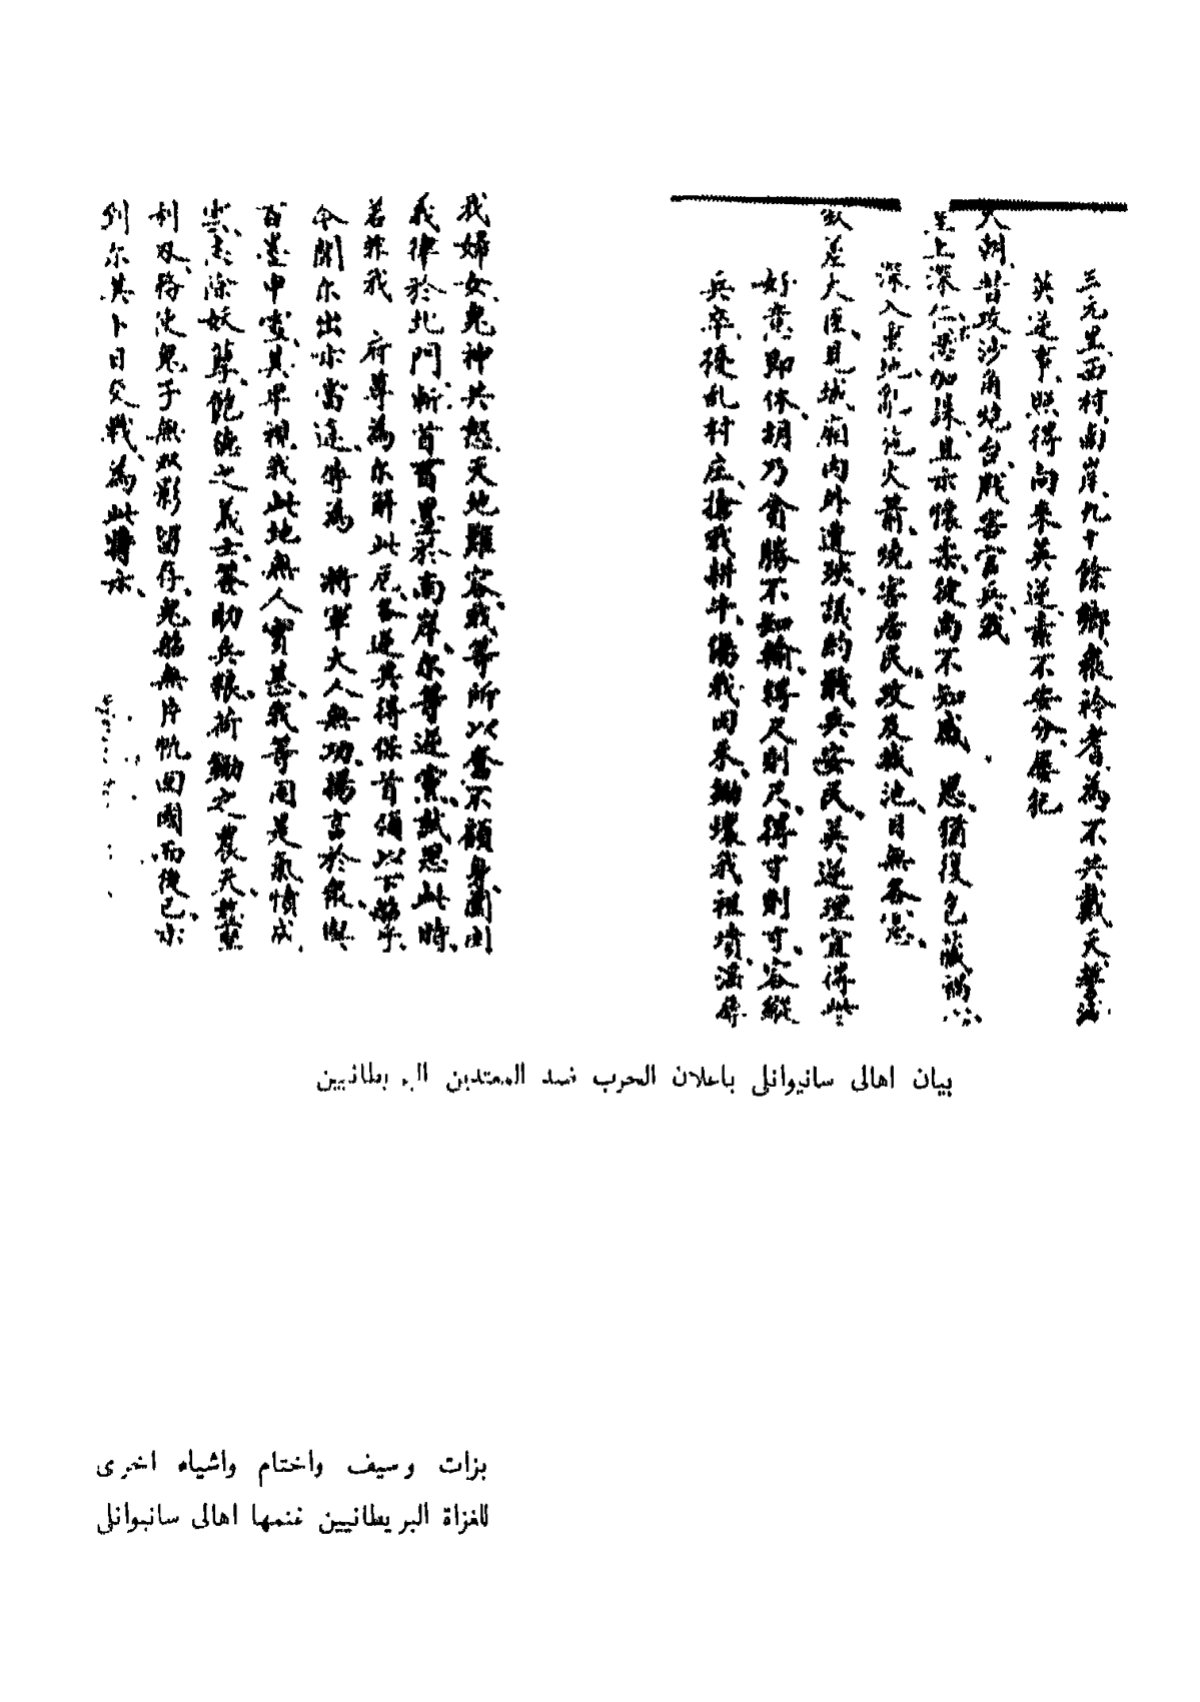 三元里西村南岸九十餘鄉衆衿耆為不共戴天誓滅
英逆事照得向來英逆素不安分屢犯
天朝昔攻沙角炮台戕害官兵我
皇上深仁悉加誅且示懷柔彼尚不知感 恩猶復包藏禍心
深入重地亂施火箭燒害居民攻及城池目無各憲
欽差大臣見城廂內外遭殃議約戰兵安民英逆理宜得此
好意即休胡乃貪勝不知輸得尺則尺得寸則寸容縱
兵卒擾乱村庄搶我耕牛傷我田禾鋤壞我祖墳淫辱
我婦女鬼神共怒天地難容我等所以奮不顧身圍困
義律於北門斬首百墨於南岸尔等逆黨試思此時
若非我 府尊為尔解此厄各逆其得保首領以下船乎
今聞尔出示當途稱為 將軍大人無功揚言於衆與
百姓申其卑視我此地無人實甚我等用是氣憤成
忠志除妖草飽德之義士答助兵糧折鋤之農夫
利刃務使鬼子無双影留存鬼船無片帆回國而後已示
到尔其卜日交戰為此特示
بيان اهالى سانيوانلى باعلان الحرب ضد المعتدين البريطانيين
بزات وسيف واختام واشياء اخرى
للغزاة البريطانيين غنمها اهالى سانيوانلى